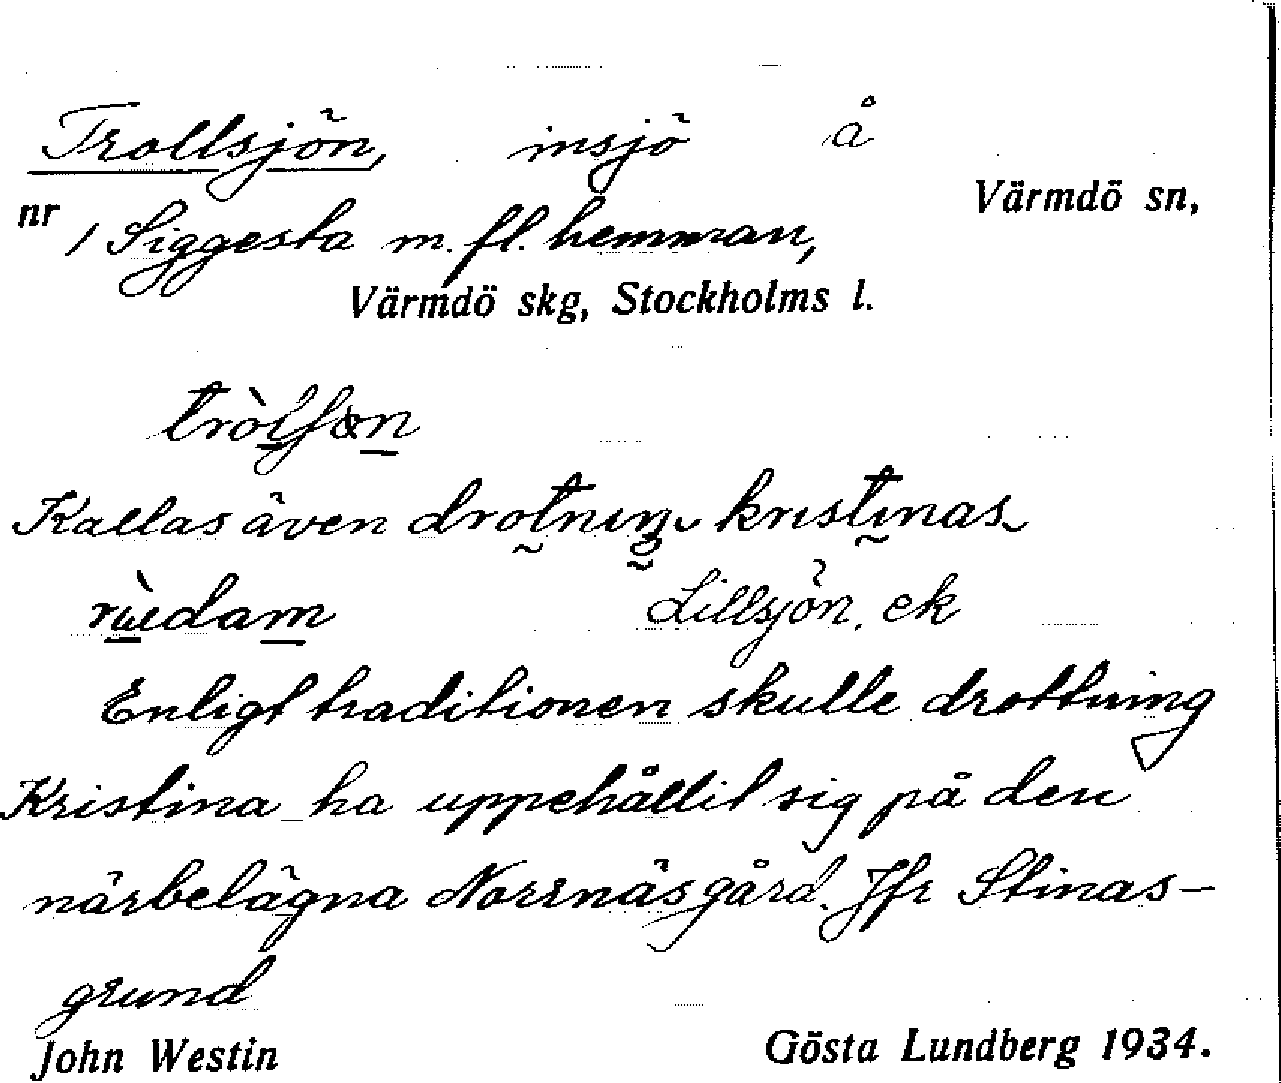 Trollsjön, insjö å
Värmdö sn,
nr 1 Siggesta m. fl. hemman,
Värmdö skg, Stockholms l.
Kallas även drotnıŋ kristinas
Lillsjön. ek
Enligt traditionen skulle drottning
Kristina ha uppehållit sig på den
närbelägna Norrnäs gård. Jfr Stinas-
grund
John Westin Gösta Lundberg 1934.